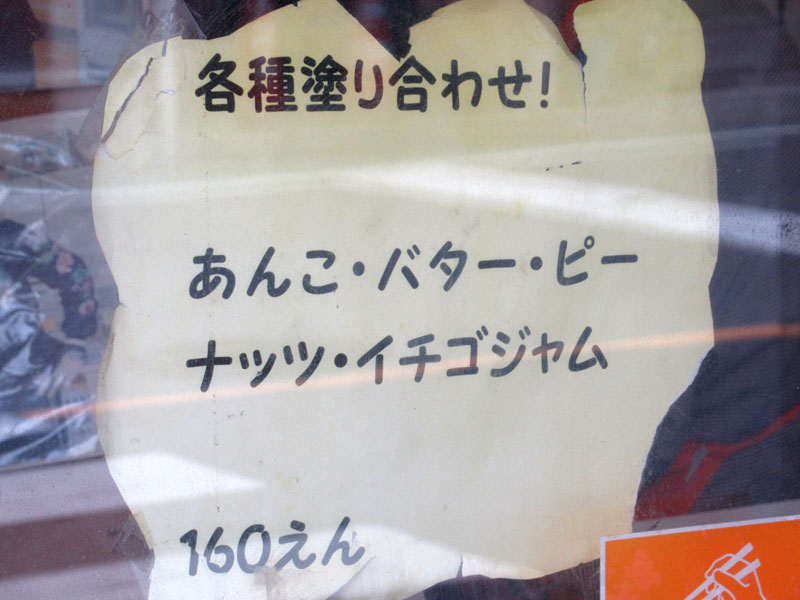 各種塗り合わせ!
あんこ・バター・ピー
ナッツ・イチゴジャム
160えん